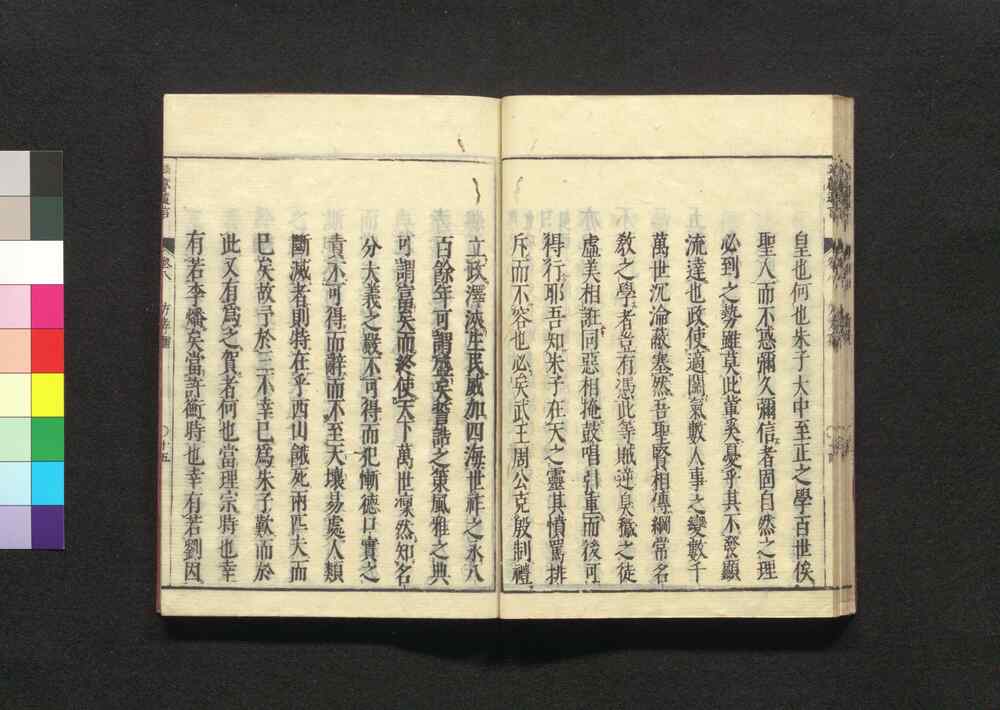 皇也何也朱子大中至正之學百世俟
聖人而不惑彌久彌信者固自然之理
必到之勢雖莫此輩奚憂乎其不發顯
流達也政使適關氣數人事之變數千
萬世沉淪蔽塞然吾聖賢相傳綱常名
敎之學者豈有憑此等賊逆臭穢之徒
虛美相誑同惡相掩鼓唱引重而後可
得行耶吾知朱子在天之靈其憤罵排
斥而不容也必矣武王周公克殷制禮
立政澤浹生民威加四海世祚之永八
百餘年可謂盛矣誓誥之策風雅之典
可謂富矣而終使天下萬世凜然知名
分大義之嚴不可得而犯慚德口實之
責不可得而辭而不至天壤易處人類
斷滅者則特在乎西山餓死兩匹夫而
已矣故予於三不幸已爲朱子歎而於
此又有爲之賀者何也當理宗時也幸
有若李燔矣當許衡時也幸有若劉因